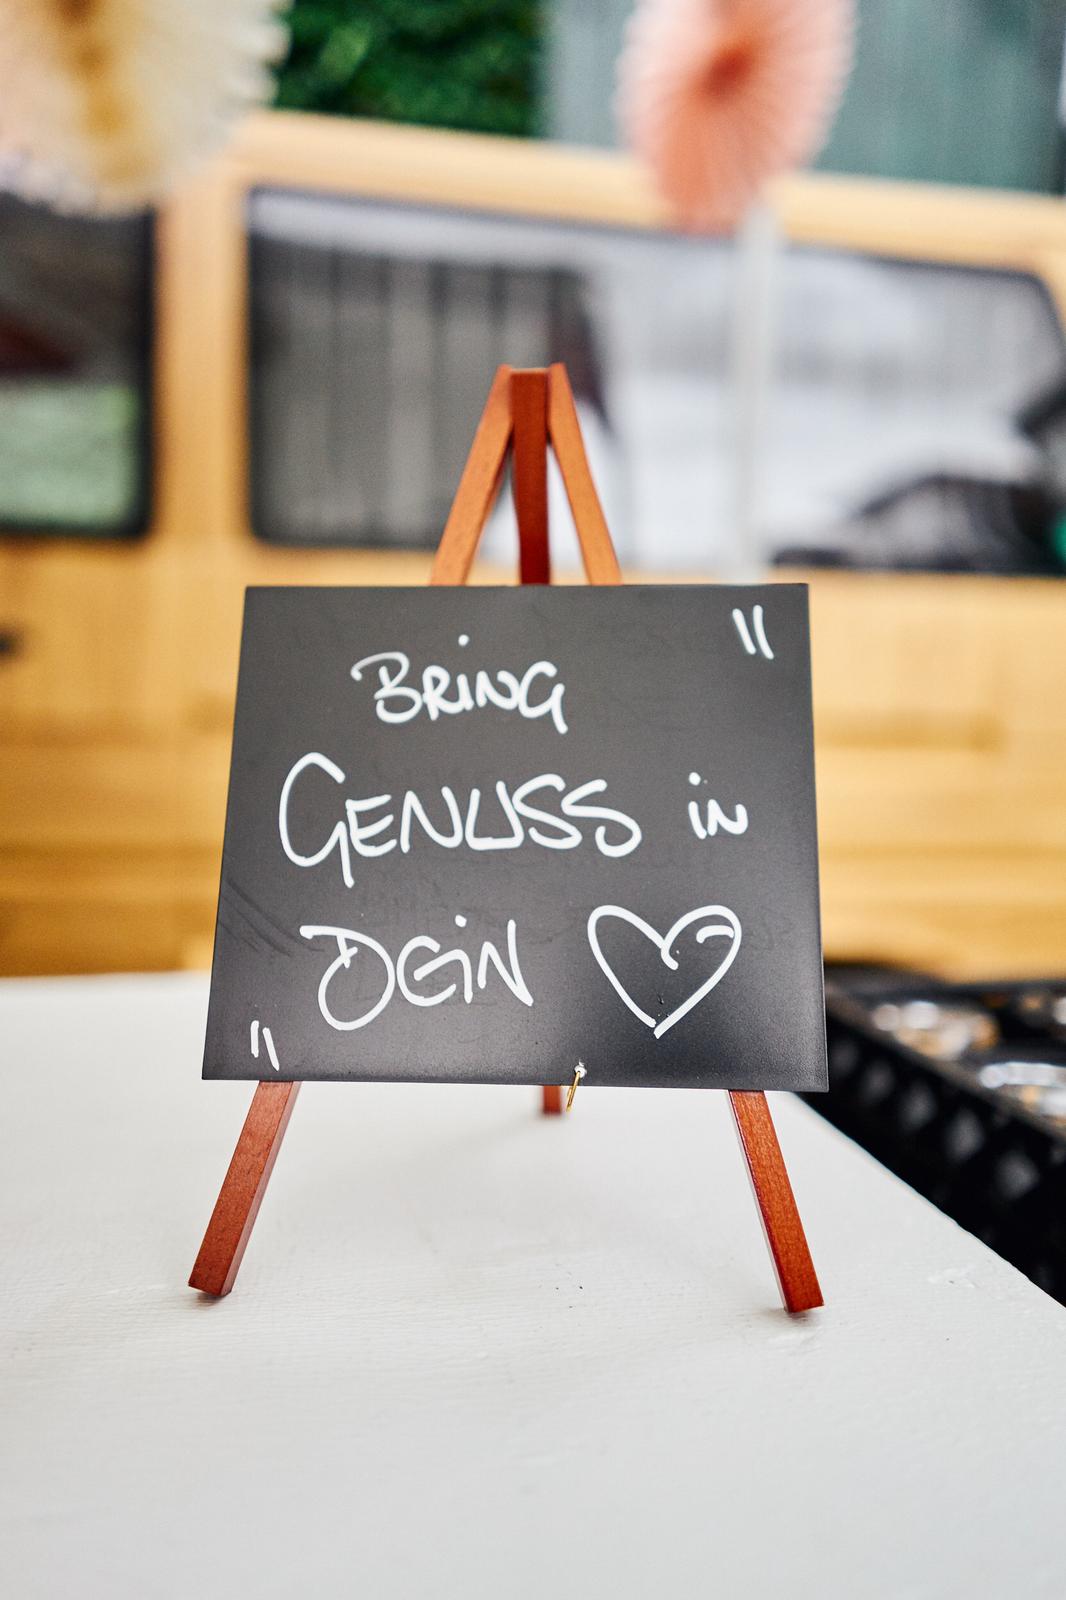 BRING
GENUSS in
DEiN ♡